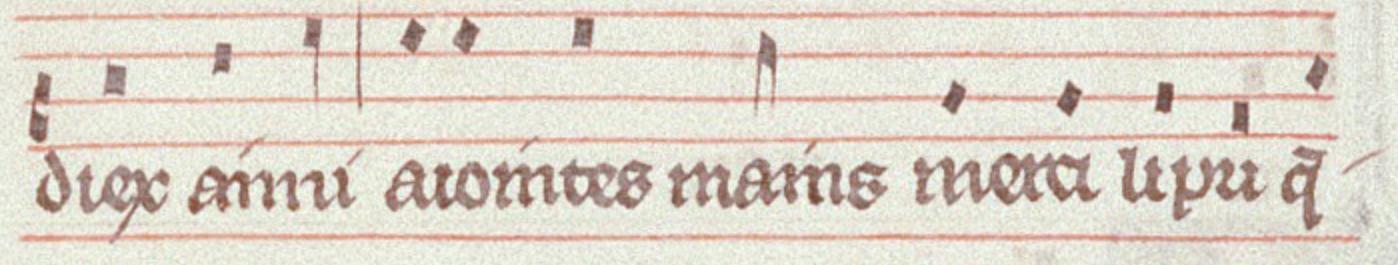 diex ainu aiointes mains merci li pri q̄